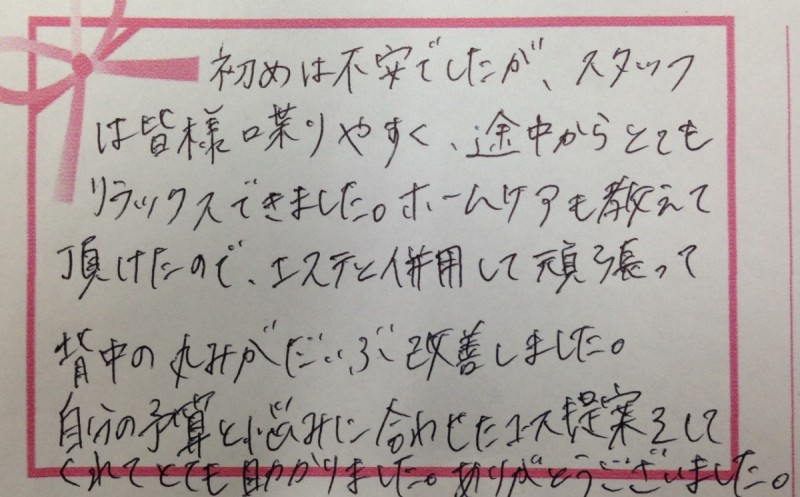 初めは不安でしたが、スタッフ
は皆様喋りやすく、途中からとても
リラックスできました。ホームケアも教えて
頂けたので、エステと併用して頑張って
背中の丸みがだいぶ改善しました。
自分の予算と悩みに合わせたコース提案をして
くれてとても助かりました。ありがとうございました。